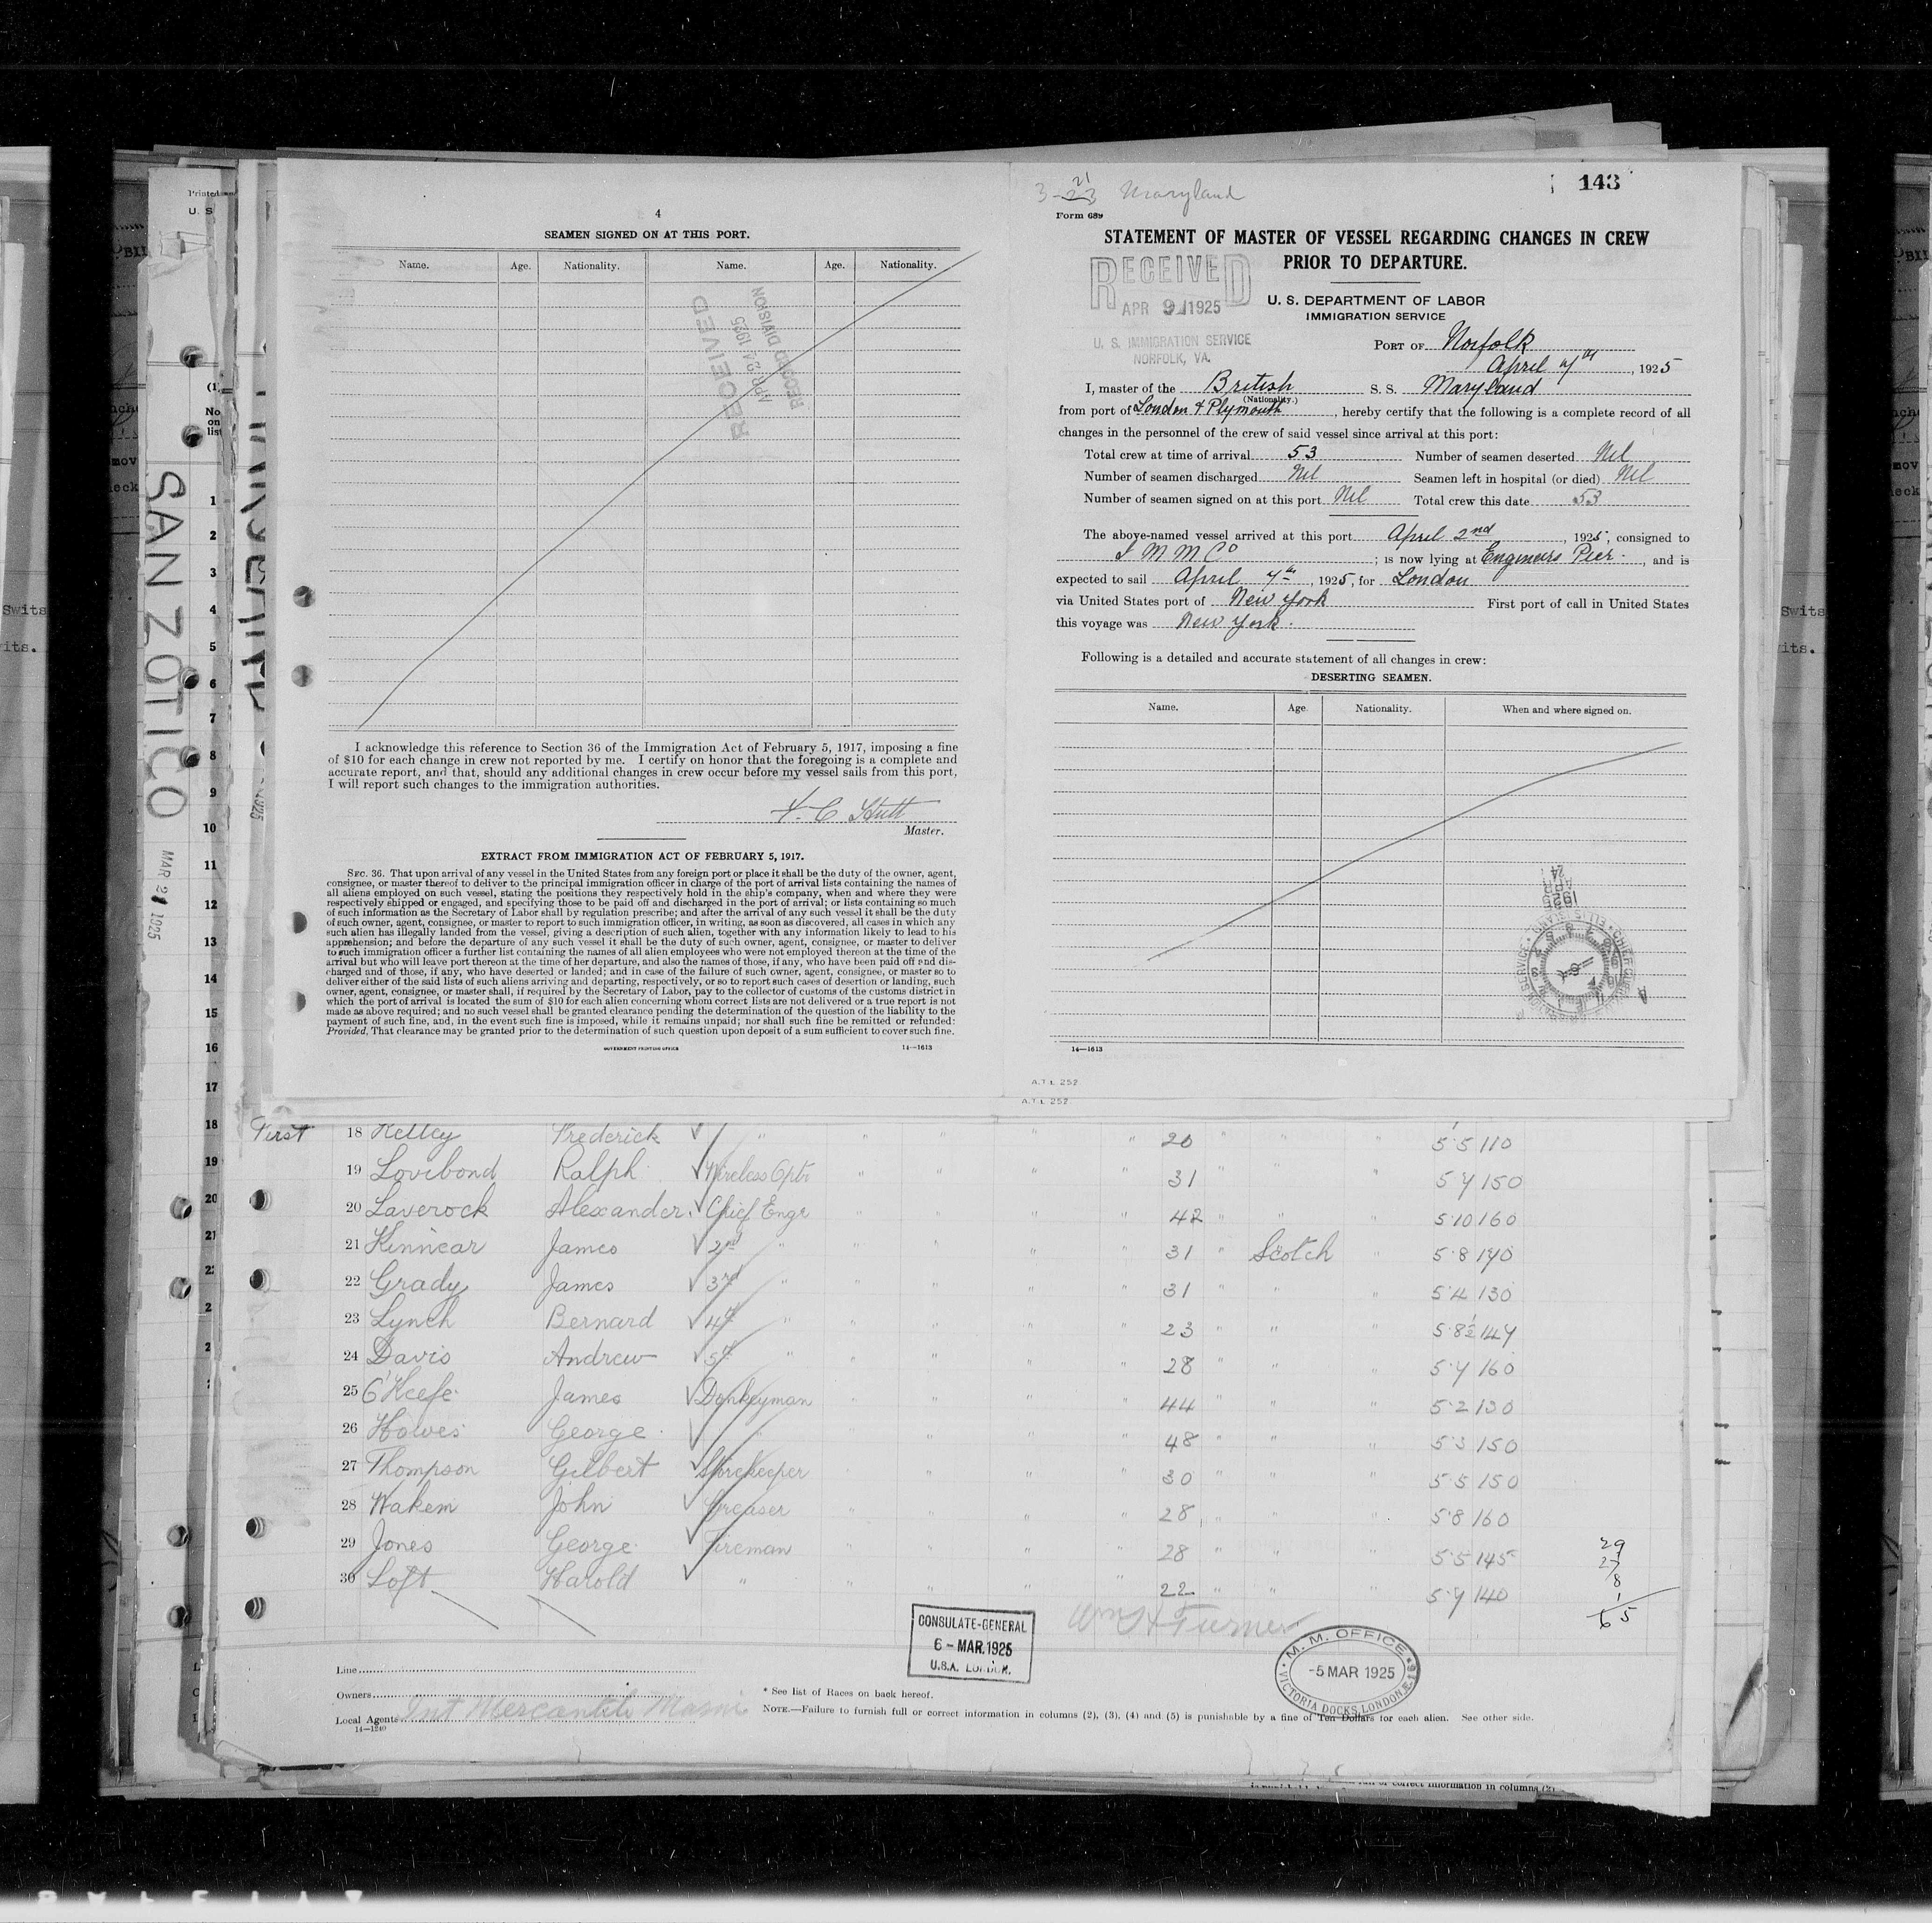 4
SEAMEN SIGNED ON AT THIS PORT.
Name. Age. Nationality. Name. Age. Nationality.
RECEIVED
APR 24 1925
RECORD DIVISION
I acknowledge this reference to Section 36 of the Immigration Act of February 5, 1917, imposing a fine
of $10 for each change in crew not reported by me. I certify on honor that the foregoing is a complete and
accurate report, and that, should any additional changes in crew occur before my vessel sails from this port,
I will report such changes to the immigration authorities.
Master.
EXTRACT FROM IMMIGRATION ACT OF FEBRUARY 5, 1917.
SEC. 36. That upon arrival of any vessel in the United States from any foreign port or place it shall be the duty of the owner, agent,
consignee, or master thereof to deliver to the principal immigration officer in charge of the port of arrival lists containing the names of
all aliens employed on such vessel, stating the positions they respectively hold in the ship's company, when and where they were
respectively shipped or engaged, and specifying those to be paid off and discharged in the port of arrival; or lists containing so much
of such information as the Secretary of Labor shall by regulation prescribe; and after the arrival of any such vessel it shall be the duty
of such owner, agent, consignee, or master to report to such immigration officer, in writing, as soon as discovered, all cases in which any
such alien has illegally landed from the vessel, giving a description of such alien, together with any information likely to lead to his
apprehension; and before the departure of any such vessel it shall be the duty of such owner, agent, consignee, or master to deliver
to such immigration officer a further list containing the names of all alien employees who were not employed thereon at the time of the
arrival but who will leave port thereon at the time of her departure, and also the names of those, if any, who have been paid off and dis-
charged and of those, if any, who have deserted or landed; and in case of the failure of such owner, agent, consignee, or master so to
deliver either of the said lists of such aliens arriving and departing, respectively, or so to report such cases of desertion or landing, such
owner, agent, consignee, or master shall, if required by the Secretary of Labor, pay to the collector of customs of the customs district in
which the port of arrival is located the sum of $10 for each alien concerning whom correct lists are not delivered or a true report is not
made as above required; and no such vessel shall be granted clearance pending the determination of the question of the liability to the
payment of such fine, and, in the event such fine is imposed, while it remains unpaid; nor shall such fine be remitted or refunded:
Provided, That clearance may be granted prior to the determination of such question upon deposit of a sum sufficient to cover such fine.
GOVERNMENT PRINTING OFFICE 14—1613
3-23 21 Maryland
143
Form 689
STATEMENT OF MASTER OF VESSEL REGARDING CHANGES IN CREW
PRIOR TO DEPARTURE.
RECEIVED
APR 9 1925
U. S. IMMIGRATION SERVICE
NORFOLK, VA.
U. S. DEPARTMENT OF LABOR
IMMIGRATION SERVICE
PORT OF Norfolk
April 7th, 1925
I, master of the British S. S. Maryland
(Nationality.)
from port of London & Plymouth, hereby certify that the following is a complete record of all
changes in the personnel of the crew of said vessel since arrival at this port:
Total crew at time of arrival 53 Number of seamen deserted Nil
Number of seamen discharged Nil Seamen left in hospital (or died) Nil
Number of seamen signed on at this port Nil Total crew this date 53
The above-named vessel arrived at this port April 2nd, 1925, consigned to
I M M Co; is now lying at Engineers Pier, and is
expected to sail April 7th, 1925, for London
via United States port of New York First port of call in United States
this voyage was New York.
Following is a detailed and accurate statement of all changes in crew:
DESERTING SEAMEN.
Name. Age. Nationality. When and where signed on.
1925
APR
24
14—1613
A.T.L 252
A.T.L 252
Printed
U. S
(1)
No
on
list
SAN ZOTICO MAR 21 1925
1
2
3
4
5
6
7
8
9
10
11
12
13
14
15
16
17
18
19
20
21
First 18 Kelley Frederick " " " " " 20 " " " 5·5 110
19 Lovibond Ralph Wireless Optr " " " " 31 " " " 5·7 150
20 Laverock Alexander Chief Engr " " " " 42 " " " 5·10 160
21 Kinnear James 2nd " " " " " 31 " Scotch " 5·8 170
22 Grady James 3rd " " " " " 31 " " " 5·4 130
23 Lynch Bernard 4th " " " " " 23 " " " 5·8½ 147
24 Davis Andrew 5th " " " " " 28 " " " 5·7 160
25 O'Keefe James Donkeyman " " " " 44 " " " 5·2 130
26 Howes George " " " " " 48 " " " 5·3 150
27 Thompson Gilbert Storekeeper " " " " 30 " " " 5·5 150
28 Wakem John Greaser " " " " 28 " " " 5·8 160
29 Jones George Fireman " " " " 28 " " " 5·5 145
30 Loft Harold " " " " " 22 " " " 5·7 140
29
27
8
1
65
Wm H Turner
CONSULATE-GENERAL
6-MAR.1925
U.S.A. LONDON.
M. M. OFFICE
-5 MAR 1925
VICTORIA DOCKS, LONDON
Line
Owners
Local Agents Int Mercantile Marine
14—1240
* See list of Races on back hereof.
NOTE.—Failure to furnish full or correct information in columns (2), (3), (4) and (5) is punishable by a fine of Ten Dollars for each alien. See other side.